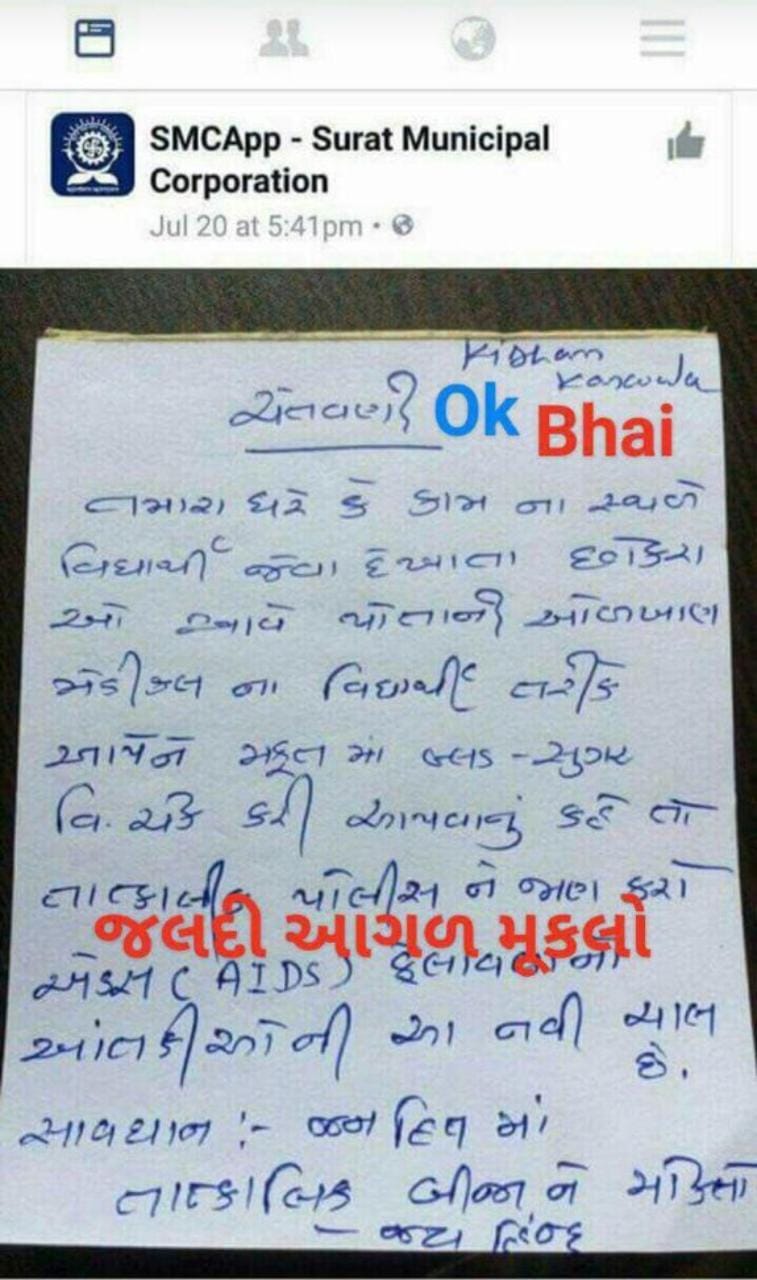 SMCApp - Surat Municipal
Corporation
Jul 20 at 5:41pm
Kishan
ચેતવણી Ok Bhai
તમારા ઘરે કે કામ ના સ્થળે
વિદ્યાર્થી જેવા દેખાતા છોકરા
ઓ આવે પોતાની ઓળખાણ
મેડીકલ ના વિદ્યાર્થી તરીકે
આપેને મફત માં બ્લડ - સુગર
વિ. ચેક કરી આપવાનું કહે તો
તાત્કાલીક પોલીસ ને જાણ કરો
જલદી આગળ મૂકલો
એઇડ્સ (AIDS) ફેલાવવાની
આંતકીઓની આ નવી ચાલ
છે.
સાવધાન :- જન હિત માં
તાત્કાલિક બીજા ને મોકલો
- જય હિન્દ